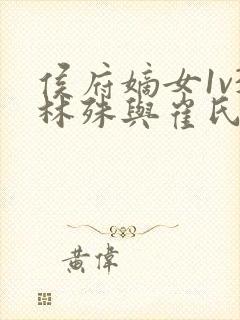 侯府嫡女1v
林殊與崔氏
黃偉